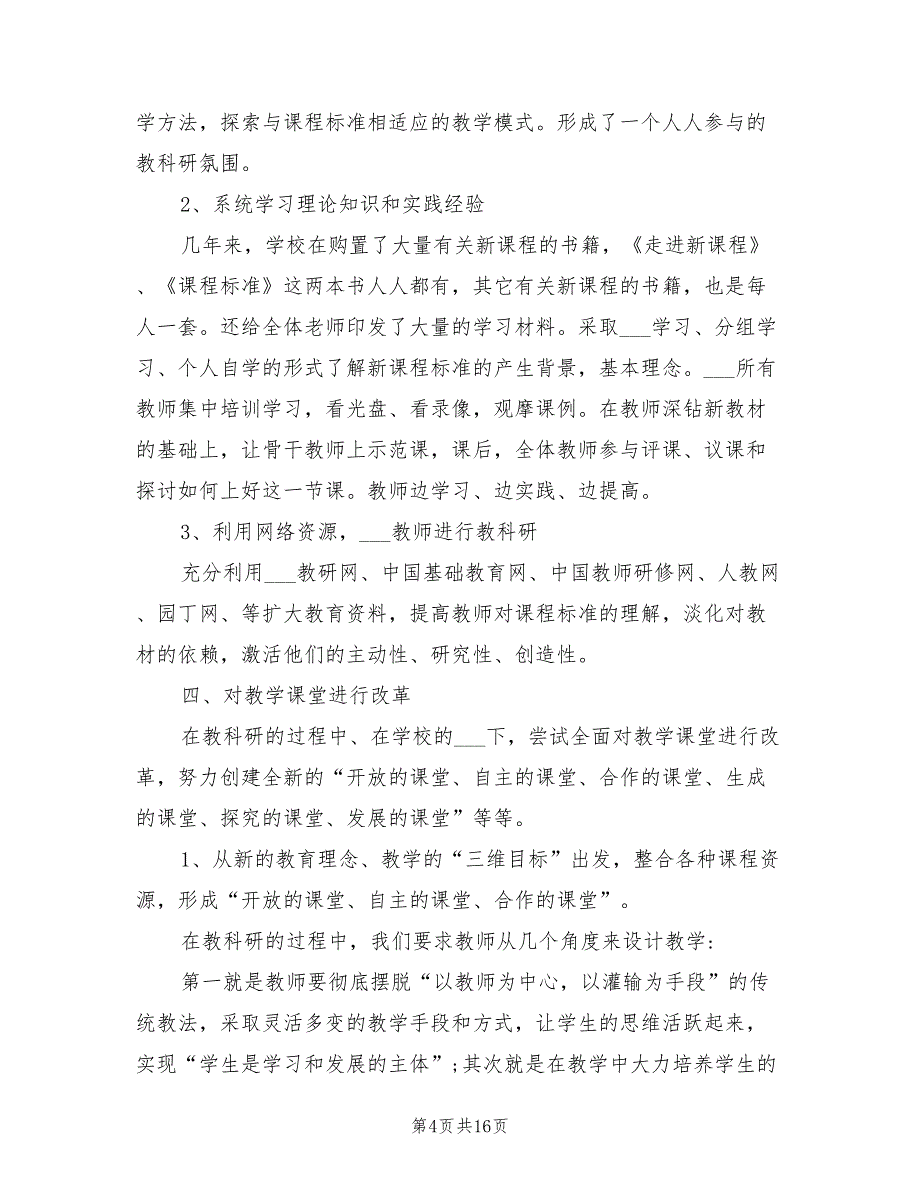 学方法，探索与课程标准相适应的教学模式。形成了一个人人参与的
教科研氛围。
2、系统学习理论知识和实践经验
几年来，学校在购置了大量有关新课程的书籍，《走进新课程》
、《课程标准》这两本书人人都有，其它有关新课程的书籍，也是每
人一套。还给全体老师印发了大量的学习材料。采取___学习、分组学
习、个人自学的形式了解新课程标准的产生背景，基本理念。___所有
教师集中培训学习，看光盘、看录像，观摩课例。在教师深钻新教材
的基础上，让骨干教师上示范课，课后，全体教师参与评课、议课和
探讨如何上好这一节课。教师边学习、边实践、边提高。
3、利用网络资源，___教师进行教科研
充分利用___教研网、中国基础教育网、中国教师研修网、人教网
、园丁网、等扩大教育资料，提高教师对课程标准的理解，淡化对教
材的依赖，激活他们的主动性、研究性、创造性。
四、对教学课堂进行改革
在教科研的过程中、在学校的___下，尝试全面对教学课堂进行改
革，努力创建全新的“开放的课堂、自主的课堂、合作的课堂、生成
的课堂、探究的课堂、发展的课堂”等等。
1、从新的教育理念、教学的“三维目标”出发，整合各种课程资
源，形成“开放的课堂、自主的课堂、合作的课堂”。
在教科研的过程中，我们要求教师从几个角度来设计教学:
第一就是教师要彻底摆脱“以教师为中心，以灌输为手段”的传
统教法，采取灵活多变的教学手段和方式，让学生的思维活跃起来，
实现“学生是学习和发展的主体”;其次就是在教学中大力培养学生的
第4页共16页